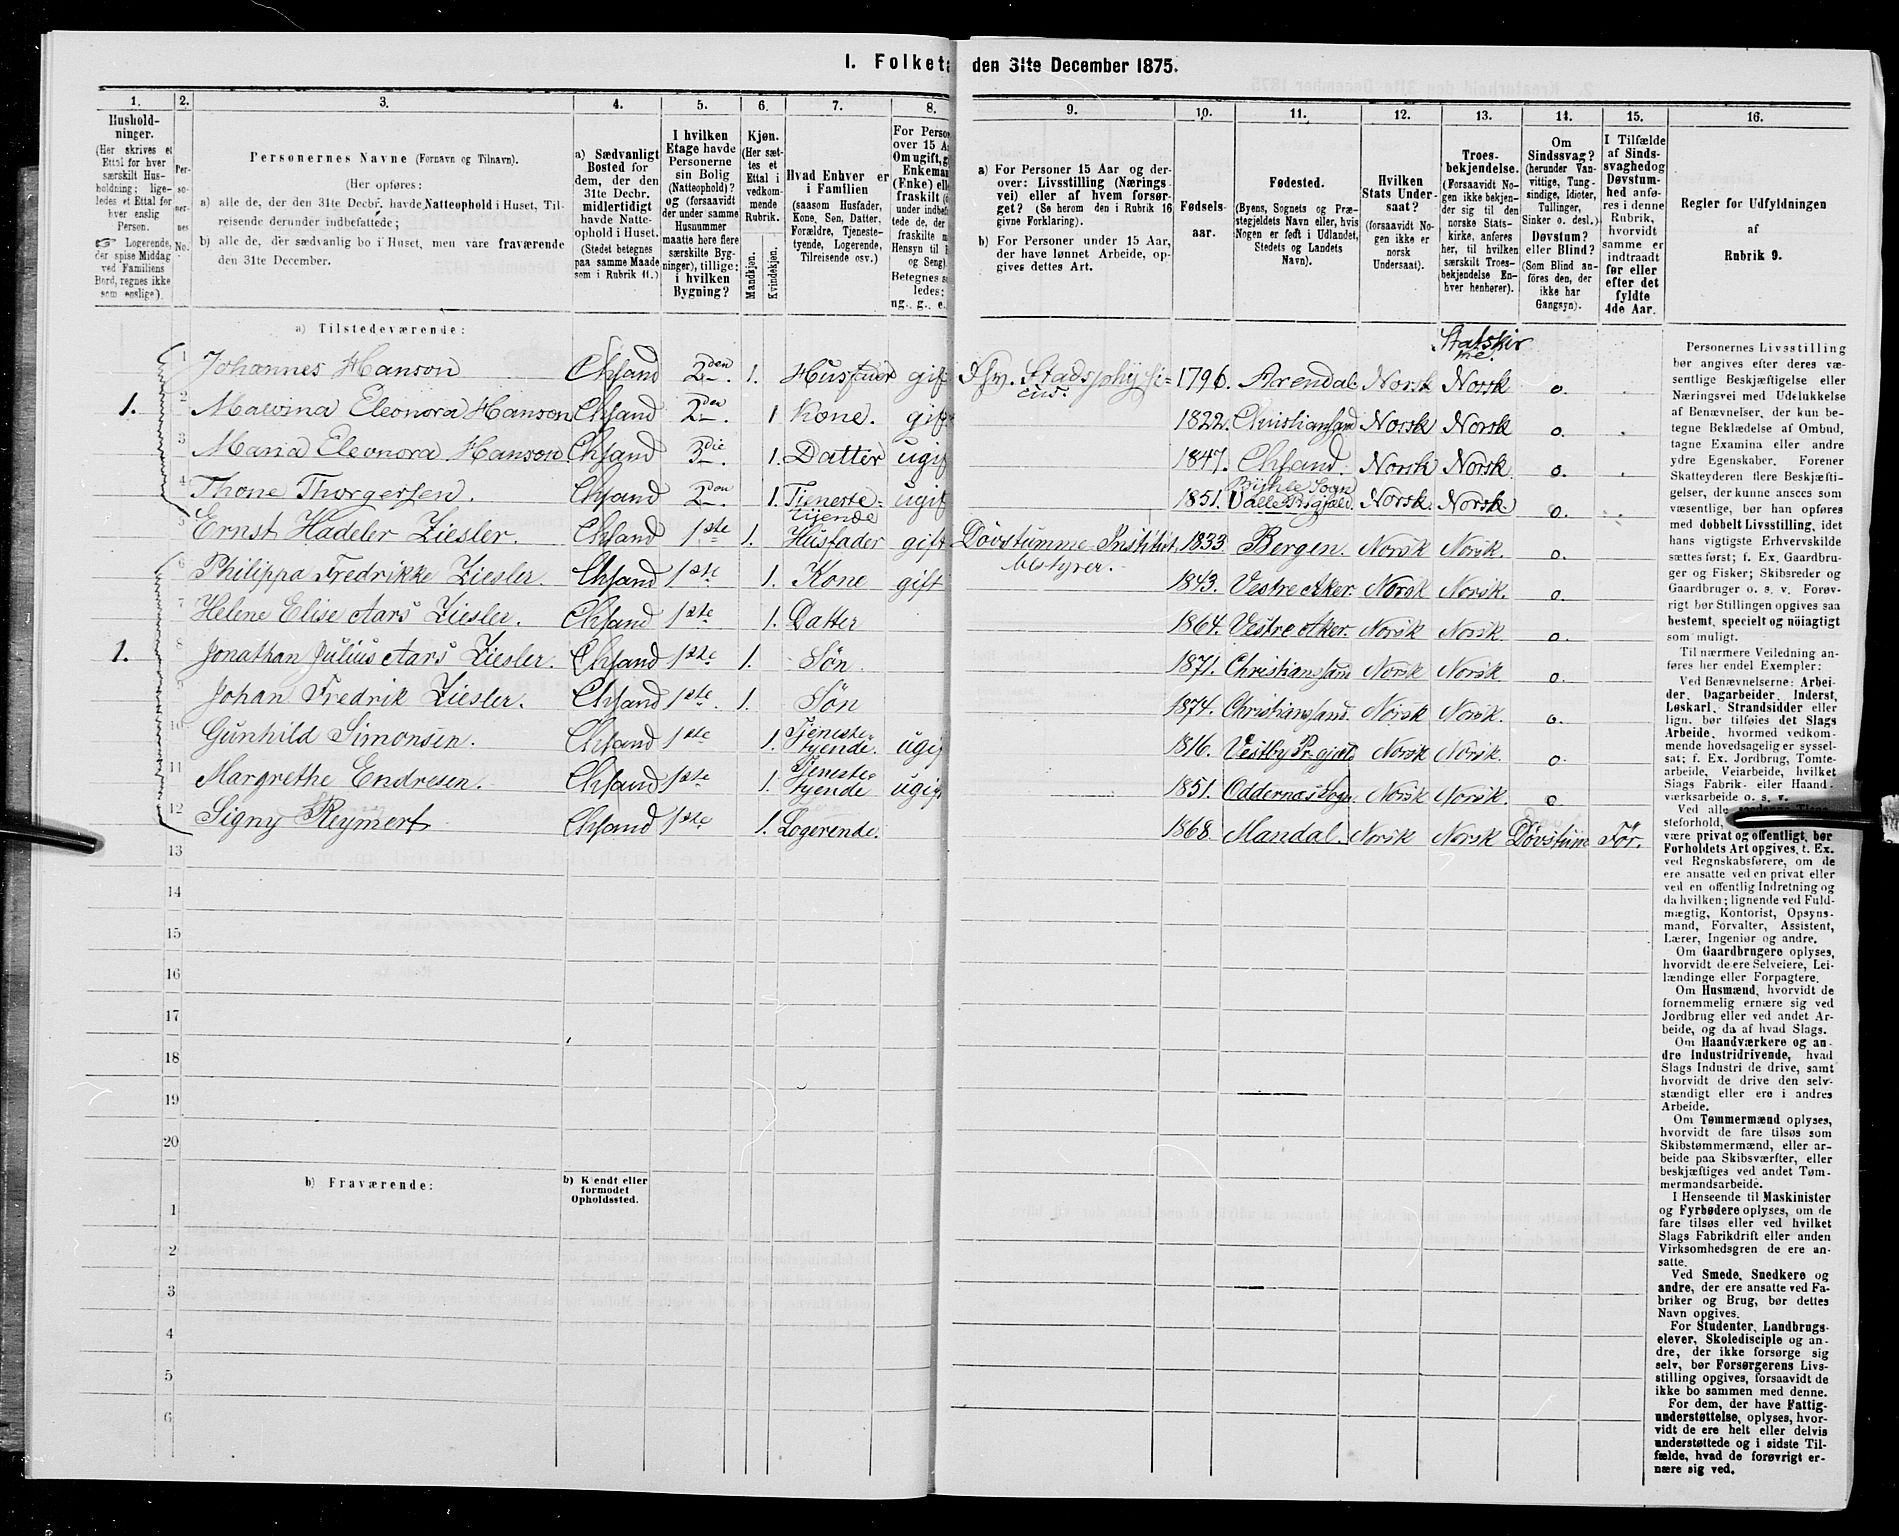 I. Folketæ den 31te December 1875.
1. 2. 3. 4. 5. 6. 7. 8. 9. 10. 11. 12. 13. 14. 15. 16.
Hushold-
ninger.
(Her skrives et
Ettal for hver
særskilt Hus-
holdning; lige-
ledes et Ettal for
hver enslig
Person.
☞ Logerende,
der spise Middag
ved Familiens
Bord, regnes ikke
som enslige).
Per-
so-
ner-
nes
No.
Personernes Navne (Fornavn og Tilnavn).
(Her opføres:
a) alle de, der den 31te Decbr. havde Natteophold i Huset, Til-
reisende derunder indbefattede;
b) alle de, der sædvanlig bo i Huset, men vare fraværende
den 31te December.
a) Sædvanligt
Bosted for
dem, der den
31te Decbr.
midlertidigt
havde Natte-
ophold i Huset.
(Stedet betegnes
paa samme Maade
som i Rubrik 11.)
I hvilken
Etage havde
Personerne
sin Bolig
(Natteophold)?
og (forsaavidt
der under samme
Husnummer
maatte høre flere
særskilte Byg-
ninger), tillige:
i hvilken
Bygning?
Kjøn.
(Her sæt-
tes et
Ettal i
vedkom-
mende
Rubrik.
Mandkjøn.
Kvindekjøn.
Hvad Enhver er
i Familien
(saasom Husfader,
Kone, Søn, Datter,
Forældre, Tjeneste-
tyende, Logerende,
Tilreisende osv.)
For Perso
over 15 A
Om ugift, g
Enkeman
(Enke) elle
fraskilt (
under indbef
tede de, der
fraskilte m
Hensyn til B
og Seng).
Betegnes s
ledes:
ug., g., e.
a) For Personer 15 Aar og der-
over: Livsstilling (Nærings-
vei) eller af hvem forsør-
get? (Se herom den i Rubrik 16
givne Forklaring).
b) For Personer under 15 Aar,
der have lønnet Arbeide, op-
gives dettes Art.
Fødsels-
aar.
Fødested.
(Byens, Sognets og Præ-
stegjeldets Navn eller, hvis
Nogen er født i Udlandet,
Stedets og Landets
Navn).
Hvilken
Stats Under-
saat?
(forsaavidt No-
gen ikke er
norsk
Undersaat).
Troes-
bekjendelse.
(Forsaavidt No-
gen ikke bekjen-
der sig til den
norske Stats-
kirke, anføres
her, til hvilken
særskilt Troes-
bekjendelse En-
hver henhører).
Om
Sindssvag?
(herunder Van-
vittige, Tung-
sindige, Idioter,
Tullinger,
Sinker o. desl.)
Døvstum?
eller Blind?
(Som Blind an-
føres den, der
ikke har
Gangsyn).
I Tilfælde
af Sinds-
svaghed og
Døvstum-
hed anfø-
res i denne
Rubrik,
hvorvidt
samme er
indtraadt
før eller
efter det
fyldte
4de Aar.
Regler for Udfyldningen
af
Rubrik 9.
a) Tilstedeværende:
Statskir
ke.
1 Johannes Hanson Chsand 2den. 1. Husfader gift Stadsphysi= 1796. Arendal Norsk Norsk o.
cus.
1. 2 Malvina Eleonora Hanson Chsand 2den. 1 Kone. gift 1822. Christiansand Norsk Norsk o.
3 Maria Eleonora Hanson. Chsand 3die. 1. Datter ugif 1847. Chsand. Norsk Norsk o.
4 Thone Thorgersen. Chsand 2den. 1. Tieneste= ugif 1851. Valle Prgjeld. Norsk. Norsk. o.
tijende Bijkle Sogn
5 Ernst Hadeler Ziesler. Chsand 1ste 1. Husfader gift Døvstumme Institut 1833 Bergen. Norsk Norsk. o.
bestyrer.
6 Philippa Fredrikke Ziesler. Chsand 1ste. 1. Kone gift 1843. Vestre Aker. Norsk Norsk. o.
7 Helene Elise Aars Ziesler. Chsand 1ste. 1. Datter 1864. Vestre Aker. Norsk Norsk. o.
1. 8 Jonathan Julius Aars Ziesler. Chsand 1ste 1. Søn. 1871. Christianssand Norsk Norsk. o.
9 Johan Fredrik Ziesler. Chsand 1ste. 1. Søn 1874. Christianssand. Norsk Norsk. o.
10 Gunhild Simonsen. Chsand 1ste 1. Tjeneste= tyende. ugif 1816. Vestby Prgjæld Norsk Norsk. o.
11 Margrethe Endresen. Chsand 1ste 1. Tjeneste= tyende ugif 1851. Oddernæs Sogn Norsk Norsk. o.
12 Signy Reymert Chsand 1ste 1. Logerende. 1868. Mandal. Norsk Norsk Døvstum Før.
13
14
15
16
17
18
19
20
b) Fraværende:
b) Kjendt eller
formodet
Opholdssted.
1
2
3
4
5
6
Personernes Livsstilling
bør angives efter deres væ-
sentlige Beskjæftigelse eller
Næringsvei med Udelukkelse
af Benævnelser, der kun be-
tegne Beklædelse af Ombud,
tagne Examina eller andre
ydre Egenskaber. Forener
Skatteyderen flere Beskjæfti-
gelser, der kunne ansees som
væsentlige, bør han opføres
med dobbelt Livsstilling, idet
hans vigtigste Erhvervskilde
sættes først; f. Ex. Gaardbru-
ger og Fisker; Skibsreder og
Gaardbruger o. s. v. Forøv-
rigt bør Stillingen opgives saa
bestemt, specielt og nöiagtigt
som muligt.
Til nærmere Veiledning an-
føres her endel Exempler:
Ved Benævnelserne: Arbei-
der, Dagarbeider, Inderst,
Løskarl, Strandsidder eller
lign. bør tilføies det Slags
Arbeide, hvormed vedkom-
mende hovedsagelig er syssel-
sat; f. Ex. Jordbrug, Tomte-
arbeide, Veiarbeide, hvilket
Slags Fabrik- eller Haand-
værksarbeide o. s. v.
Ved alle
steforhold,
være privat og offentligt, bør
Forholdets Art opgives, t. Ex.
ved Regnskabsførere, om de
ere ansatte ved en privat eller
ved en offentlig Indretning og
da hvilken; lignende ved Fuld-
mægtig, Kontorist, Opsyns-
mand, Forvalter, Assistent,
Lærer, Ingeniør og andre.
Om Gaardbrugere oplyses,
hvorvidt de ere Selveiere, Lei-
lændinge eller Forpagtere.
Om Husmænd, hvorvidt de
fornemmelig ernære sig ved
Jordbrug eller ved andet Ar-
beide, og da af hvad Slags.
Om Haandværkere og an-
dre Industridrivende, hvad
Slags Industri de drive, samt
hvorvidt de drive den selv-
stændigt eller ere i andres
Arbeide.
Om Tømmermænd oplyses,
hvorvidt de fare tilsøs som
Skibstømmermænd, eller ar-
beide paa Skibsværfter, eller
beskjæftiges ved andet Tøm-
mermandsarbeide.
I Henseende til Maskinister
og Fyrbødere oplyses, om de
fare tilsøs eller ved hvilket
Slags Fabrikdrift eller anden
Virksomhedsgren de ere an-
satte.
Ved Smede, Snedkere og
andre, der ere ansatte ved Fa-
briker og Brug, bør dettes
Navn opgives.
For Studenter, Landbrugs-
elever, Skoledisciple og an-
dre, der ikke forsørge sig
selv, bør Forsørgerens Livs-
stilling opgives, forsaavidt de
ikke bo sammen med denne.
For dem, der have Fattig-
understøttelse, oplyses, hvor-
vidt de ere helt eller delvis
understøttede og i sidste Til-
fælde, hvad de forøvrigt er-
nære sig ved.